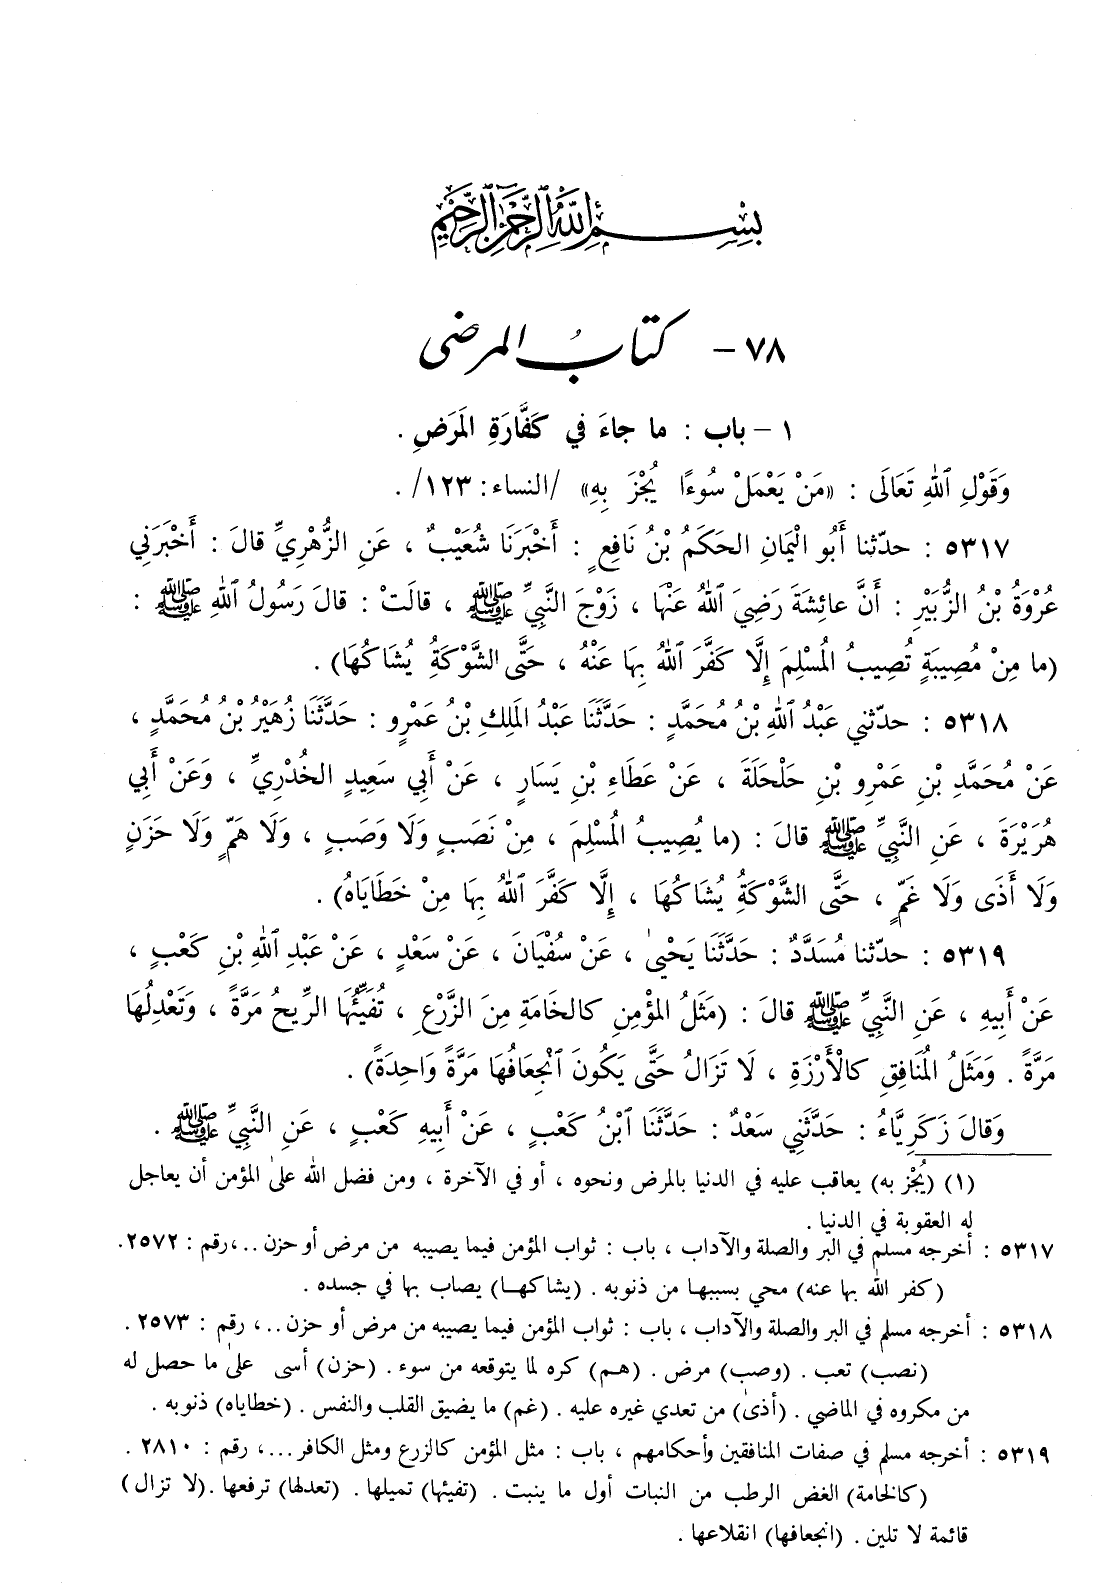 بِسْمِ ٱللَّهِ ٱلرَّحْمَٰنِ ٱلرَّحِيمِ
٧٨ - كتابُ المرضى
١ - باب : ما جاءَ في كَفَّارَةِ المَرَضِ .
وَقَوْلِ ٱللهِ تَعَالَى : «مَنْ يَعْمَلْ سُوءًا يُجْزَ بِهِ» /النساء: ١٢٣/ .
٥٣١٧ : حدّثنا أَبُو الْيَمانِ الحَكَمُ بْنُ نَافِعٍ : أَخْبَرَنَا شُعَيْبٌ ، عَنِ الزُّهْرِيِّ قالَ : أَخْبَرَنِي
عُرْوَةُ بْنُ الزُّبَيْرِ : أَنَّ عائِشَةَ رَضِيَ ٱللهُ عَنْهَا ، زَوْجَ النَّبِيِّ ﷺ ، قالَتْ : قالَ رَسُولُ ٱللهِ ﷺ :
(ما مِنْ مُصِيبَةٍ تُصِيبُ المُسْلِمَ إِلَّا كَفَّرَ ٱللهُ بِهَا عَنْهُ ، حَتَّى الشَّوْكَةُ يُشَاكُهَا) .
٥٣١٨ : حدّثني عَبْدُ ٱللهِ بْنُ مُحَمَّدٍ : حَدَّثَنَا عَبْدُ المَلِكِ بْنُ عَمْرٍو : حَدَّثَنَا زُهَيْرُ بْنُ مُحَمَّدٍ ،
عَنْ مُحَمَّدِ بْنِ عَمْرِو بْنِ حَلْحَلَةَ ، عَنْ عَطَاءِ بْنِ يَسَارٍ ، عَنْ أَبِي سَعِيدٍ الخُدْرِيِّ ، وَعَنْ أَبِي
هُرَيْرَةَ ، عَنِ النَّبِيِّ ﷺ قالَ : (ما يُصِيبُ المُسْلِمَ ، مِنْ نَصَبٍ وَلَا وَصَبٍ ، وَلَا هَمٍّ وَلَا حَزَنٍ
وَلَا أَذَى وَلَا غَمٍّ ، حَتَّى الشَّوْكَةُ يُشَاكُهَا ، إِلَّا كَفَّرَ ٱللهُ بِهَا مِنْ خَطَايَاهُ) .
٥٣١٩ : حدّثنا مُسَدَّدٌ : حَدَّثَنَا يَحْيىٰ ، عَنْ سُفْيَانَ ، عَنْ سَعْدٍ ، عَنْ عَبْدِ ٱللهِ بْنِ كَعْبٍ ،
عَنْ أَبِيهِ ، عَنِ النَّبِيِّ ﷺ قالَ : (مَثَلُ المُؤْمِنِ كالخَامَةِ مِنَ الزَّرْعِ ، تُفَيِّئُهَا الرِّيحُ مَرَّةً ، وَتَعْدِلُهَا
مَرَّةً . وَمَثَلُ المُنَافِقِ كالْأَرْزَةِ ، لَا تَزَالُ حَتَّى يَكُونَ ٱنْجِعَافُهَا مَرَّةً وَاحِدَةً) .
وَقالَ زَكَرِيَّاءُ : حَدَّثَنِي سَعْدٌ : حَدَّثَنَا ٱبْنُ كَعْبٍ ، عَنْ أَبِيهِ كَعْبٍ ، عَنِ النَّبِيِّ ﷺ .
(١) (يُجْزَ به) يعاقب عليه في الدنيا بالمرض ونحوه ، أو في الآخرة ، ومن فضل الله علىٰ المؤمن أن يعاجل
له العقوبة في الدنيا .
٥٣١٧ : أخرجه مسلم في البر والصلة والآداب ، باب : ثواب المؤمن فيما يصيبه من مرض أو حزن ..، رقم : ٢٥٧٢.
(كفر الله بها عنه) محي بسببها من ذنوبه . (يشاكهـا) يصاب بها في جسده .
٥٣١٨ : أخرجه مسلم في البر والصلة والآداب ، باب : ثواب المؤمن فيما يصيبه من مرض أو حزن ..، رقم : ٢٥٧٣ .
(نصب) تعب . (وصب) مرض . (هـم) كره لما يتوقعه من سوء . (حزن) أسى علىٰ ما حصل له
من مكروه في الماضي . (أذىٰ) من تعدي غيره عليه . (غم) ما يضيق القلب والنفس . (خطاياه) ذنوبه .
٥٣١٩ : أخرجه مسلم في صفات المنافقين وأحكامهم ، باب : مثل المؤمن كالزرع ومثل الكافر ...، رقم : ٢٨١٠ .
(كالخامة) الغض الرطب من النبات أول ما ينبت . (تفيئها) تميلها . (تعدلها) ترفعها .(لا تزال)
قائمة لا تلين . (انجعافها) انقلاعها .